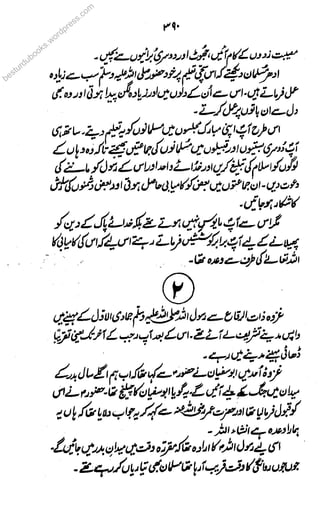 besturdubooks.wordpress.com
۳۹۰
مصیبت زدوں کے کام آئیں، جھوٹ اور دوسری برائیوں سے بچیں۔
ادھر مسلمان دیکھتے کہ اس سچی تعلیم پر خود حضور صلی اللہ علیہ وسلم سب سے زیادہ
عمل فرماتے ہیں۔ اس سے اُن کے دلوں میں اور زیادہ لگن پیدا ہوتی اور وہ بھی
دل سے ان باتوں پر عمل کرتے۔
اس طرح آپؐ اپنی مبارک مجلسوں میں مسلمانوں کو یہ تعلیم دیتے۔ ساتھ ہی
آپؐ دوسری بستیوں اور قبیلوں میں مسلمانوں کی جماعتیں بھیجتے تاکہ وہ وہاں کے
لوگوں کو اسلام کی تبلیغ کریں اور خدائے واحد اور اس کے رسول کو ماننے کی
دعوت دیں۔ ان جماعتوں میں بعض کو کامیابی حاصل ہوتی اور بعض دشمنوں کی سازش
کا شکار ہو جاتیں۔
مگر اس سے آپؐ مایوس نہیں ہوتے تھے بلکہ خدائے پاک کے دین کو
پھیلانے کے لیے آپؐ برابر کوششیں فرماتے رہے اس لیے کہ اس کی کامیابی کا
اللہ تعالیٰ کی طرف سے وعدہ تھا۔
۲
غزوہ ذات الرقاع سے رسول اللہ صلی اللہ علیہ وسلم جمادی الاول کے مہینے میں
واپس مدینے تشریف لے آئے تھے۔ اس کے بعد آپؐ رجب کے آخر تک یعنی تقریباً
ڈھائی مہینے مدینے میں رہے۔
غزوہ اُحد میں ابوسفیان نے حضورؐ سے کہا تھا کہ اب ہم اگلے سال بدر کے
میدان میں جنگ کے لیے آئیں گے۔ یہ گویا ابوسفیان کا چیلنج تھا۔ حضورؐ نے اس
کو قبول فرمایا تھا اور حضرت عمر رضی اللہ عنہ سے کہہ کر یہ جواب دلایا تھا کہ ہاں یہ
ہمارا وعدہ ہے انشاء اللہ۔
اسی لیے رسول اللہؐ کا ارادہ تھا کہ مقررہ وقت میں میدانِ بدر میں جائیں گے۔
جوں جوں روانگی کا وقت قریب آ رہا تھا مسلمان بھی تیاریاں کر رہے تھے۔